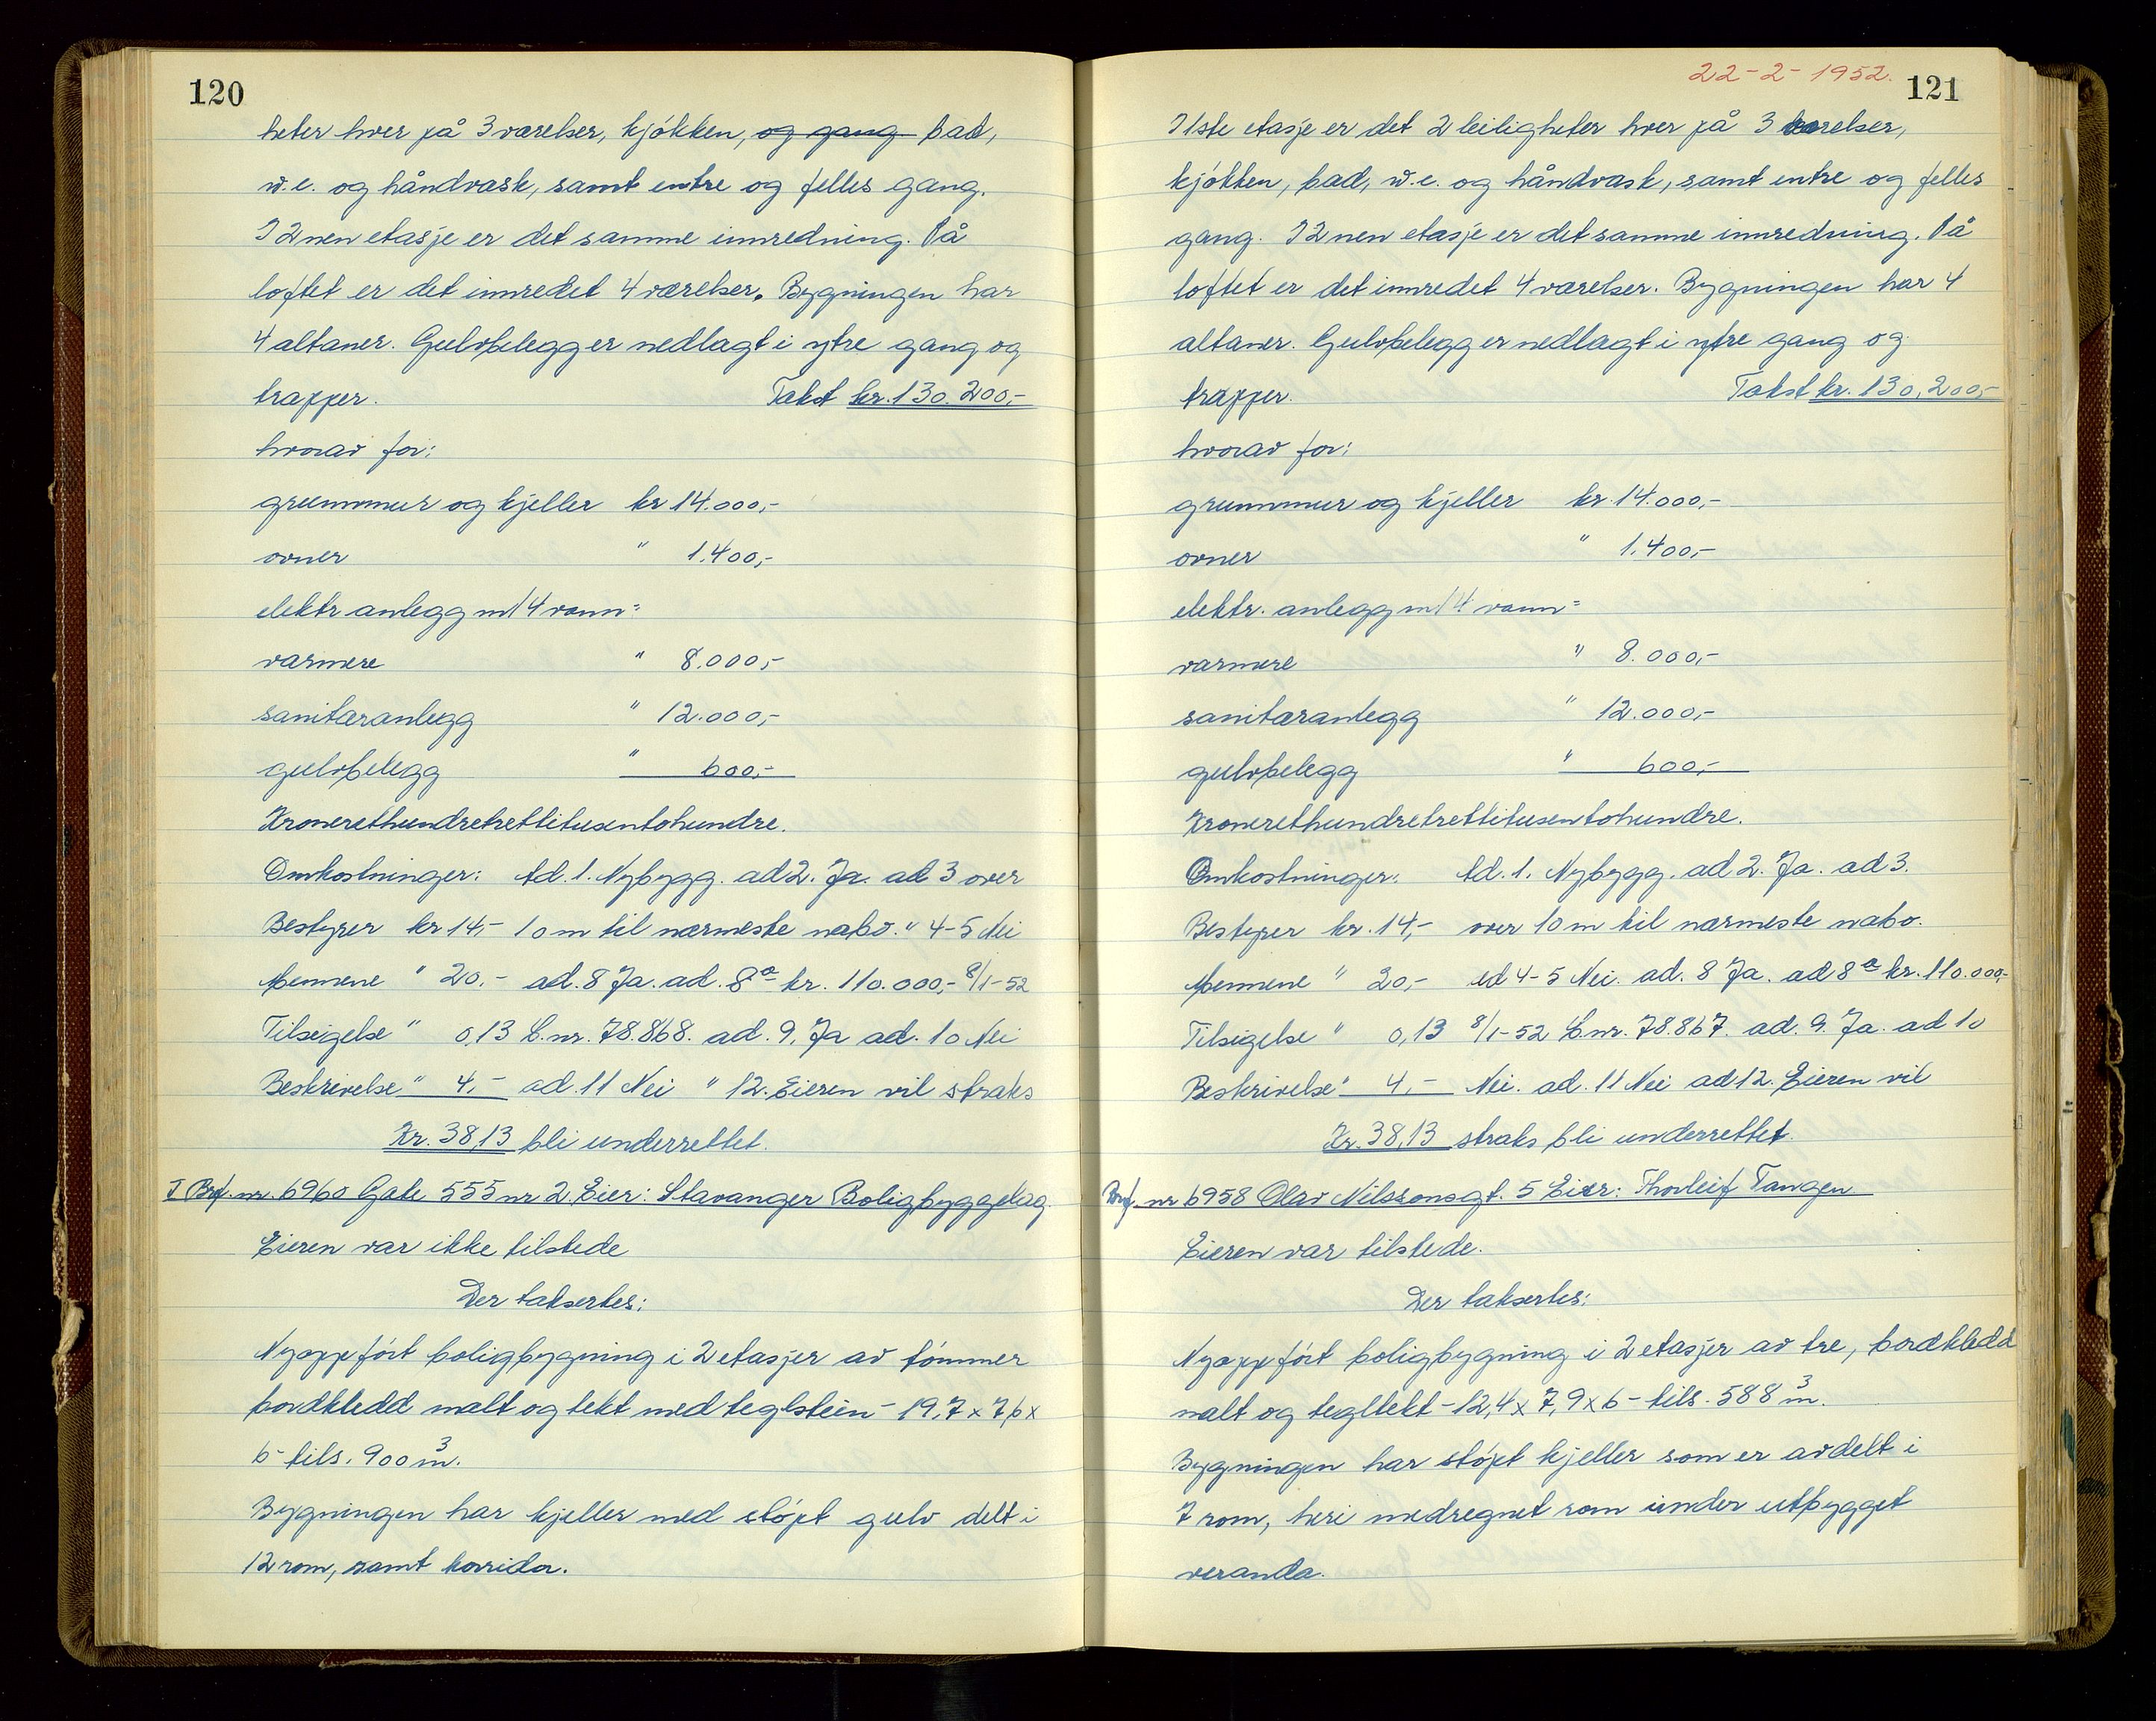 120
heter hver på 3 værelser, kjøkken, og gang bad,
w.c. og håndvask, samt entre og felles gang.
I 2nen etasje er det samme innredning. På
loftet er det innredet 4 værelser. Bygningen har
4 altaner. Gulvbelegg er nedlagt i ytre gang og
trapper. Takst kr. 130.200,-
hvorav for:
grunnmur og kjeller kr 14.000,-
ovner " 1.400,-
elektr anlegg m/4 vann=
varmere " 8.000,-
sanitæranlegg " 12.000,-
gulvbelegg " 600,-
Kronerethundretrettitusentohundre.
Omkostninger: Ad. 1. Nybygg. ad 2. Ja. ad 3 over
Bestyrer kr 14,- 10 m til nærmeste nabo. " 4-5 Nei
Mennene " 20,- ad. 8 Ja. ad. 8a kr. 110.000,- 8/1-52
Tilsigelse " 0,13 L.nr. 78.868. ad. 9. Ja ad. 10 Nei
Beskrivelse " 4,- ad. 11 Nei " 12. Eieren vil straks
Kr. 38,13 bli underrettet.
I Brf. nr. 6960 Gate 555 nr 2. Eier: Stavanger Boligbyggelag.
Eieren var ikke tilstede
Der taksertes:
Nyoppført boligbygning i 2 etasjer av tømmer
bordkledd malt og tekt med teglstein - 19,7 x 7,6 x
6 - tils. 900 m3.
Bygningen har kjeller med støpt gulv delt i
12 rom, samt korridor.
22-2-1952. 121
I 1ste etasje er det 2 leiligheter hver på 3 værelser,
kjøkken, bad, w.c. og håndvask, samt entre og felles
gang. I 2nen etasje er det samme innredning. På
loftet er det innredet 4 værelser. Bygningen har 4
altaner. Gulvbelegg er nedlagt i ytre gang og
trapper. Takst kr. 130,200,-
hvorav for:
grunnmur og kjeller kr. 14.000,-
ovner " 1.400,-
elektr. anlegg m/4 vann=
varmere " 8.000,-
sanitæranlegg " 12.000,-
gulvbelegg " 600,-
Kronerethundretrettitusentohundre.
Omkostninger: Ad. 1. Nybygg. ad 2. Ja. ad 3.
Bestyrer kr. 14,- over 10 m til nærmeste nabo.
Mennene " 20,- ad 4-5 Nei. ad. 8 Ja. ad 8a kr. 110.000,-
Tilsigelse " 0,13 8/1-52 L.nr. 78.867. ad. 9. Ja. ad 10
Beskrivelse " 4,- Nei. ad. 11 Nei ad 12. Eieren vil
Kr. 38,13 straks bli underrettet.
Brf. nr 6958 Olav Nilssonsgt. 5 Eier: Thorleif Tangen
Eieren var tilstede.
Der taksertes:
Nyoppført boligbygning i 2 etasjer av tre, bordkledd
malt og tegltekt - 12,4 x 7,9 x 6 - tils. 588 m3.
Bygningen har støpt kjeller som er avdelt i
7 rom, heri medregnet rom under utbygget
veranda.